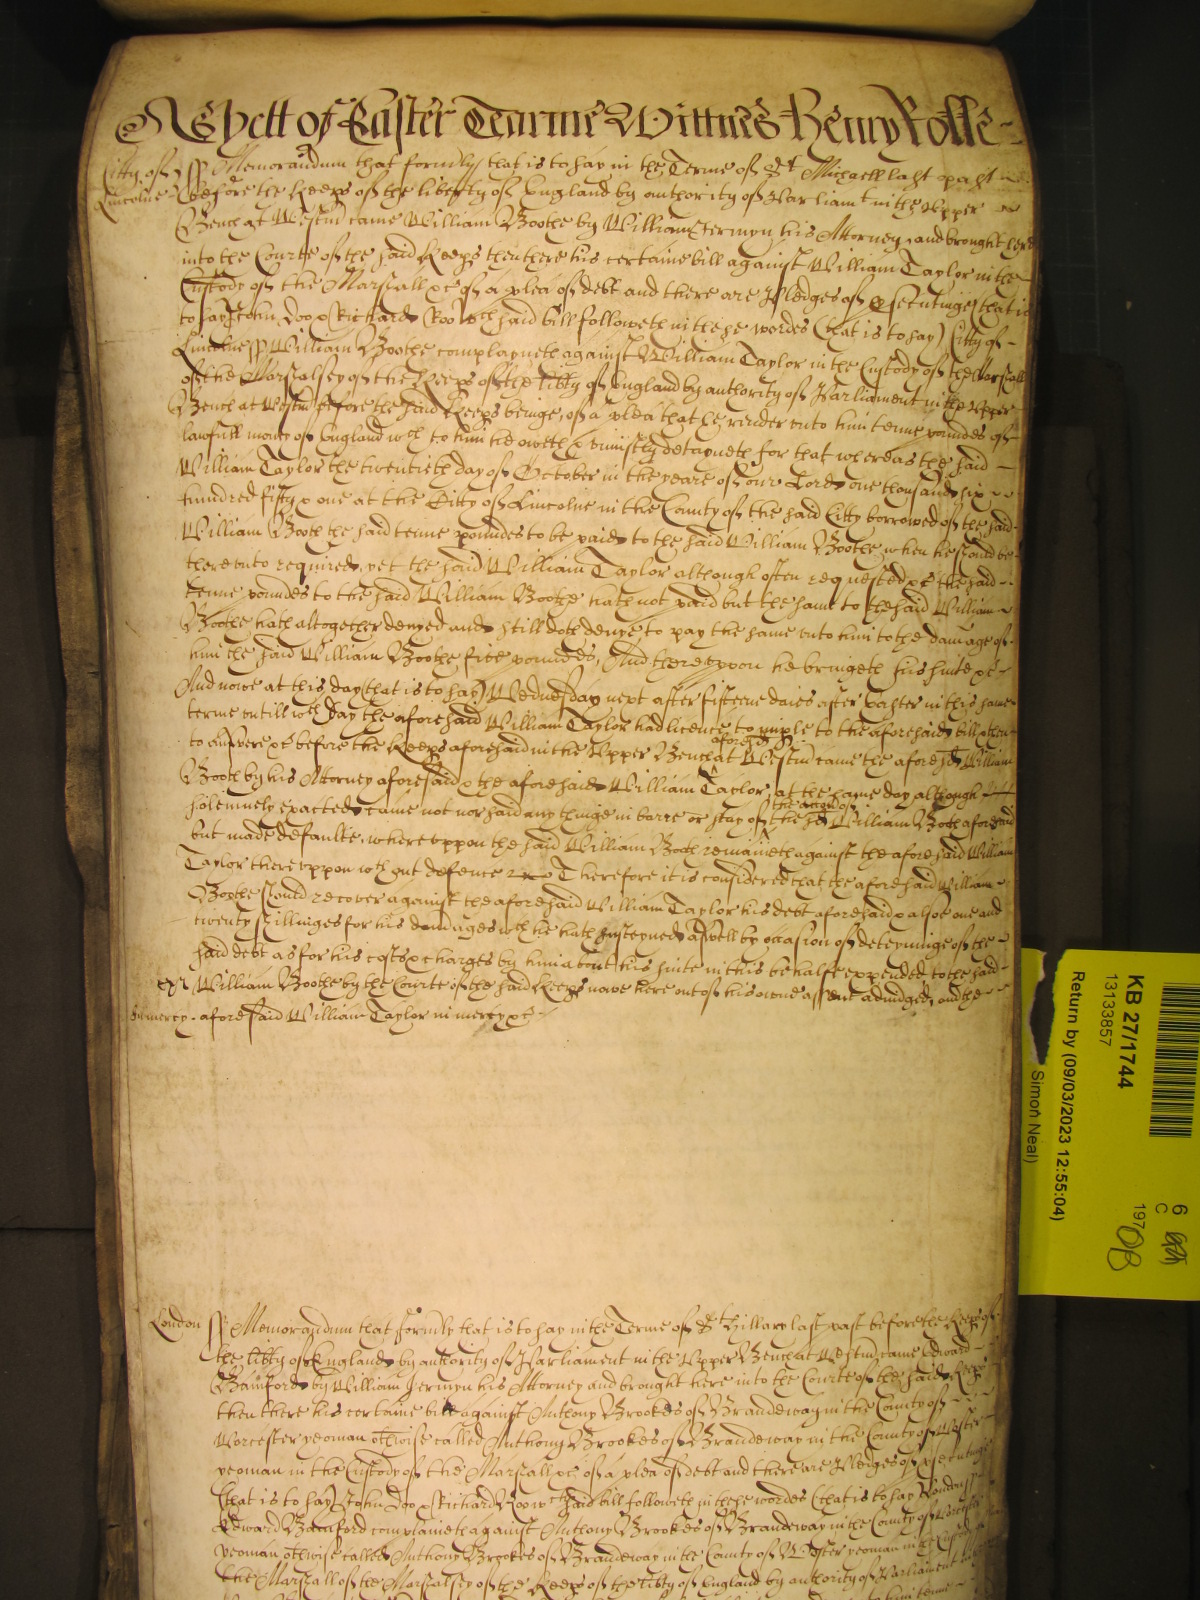 As yett of Easter Tearme Wittnes Henry Rolle
Citty of Lincolne ss Memorandum that formerly that is to say in the Terme of St Michaell last past
before the Keeps of the liberty of England by authority of Parliamt in the Upper
Bench at Westm came William Boothe by William Jermyn his Attorney and brought here
into the Courte of the said Keeps then there his certaine bill against William Taylor in the
Custody of the Marshall &c of a plea of debt and there are Pledges of psecutinge that is
to say John Doo & Richard Roo wch said bill followeth in these wordes (that is to say) Citty of
Lincolne ss William Boothe complayneth against William Taylor in the Custody of the Marshall
of the Marshalsey of the Keeps of the libty of England by authority of Parliament in the Upper
Bench at Westm before the said Keeps beinge, of a plea that he render unto him tenne poundes of
lawfull money of England wch to him he oweth & uniustly detayneth for that whereas the said
William Taylor the twentieth day of October in the yeare of our Lord one thousand six
hundred fifty & one at the Citty of Lincolne in the County of the said Citty borrowed of the said
William Booth the said tenne poundes to be paid to the said William Boothe when he should be
thereunto required, yet the said William Taylor although often requested &c the said
tenne poundes to the said William Boothe hath not paid but the same to the said William
Boothe hath altogether denyed and still doth denye to pay the same unto him to the damage of
him the said William Boothe five poundes, And thereuppon he bringeth his suite &c
And nowe at this day (that is to say) Wednesday next after fifteene daies after Easter in this same
terme untill wch day the aforesaid William Taylor had licence to imple to the aforesaid bill & then
to answere &c before the Keeps aforesaid in the Upper Bench at Westm came the aforesd William
Booth by his Attorney aforesaid & the aforesaid William Taylor aforesd at the same day although
solemnely exacted came not nor said any thinge in barre or stay of the accon of the sd William Booth aforesaid
but made defaulte, whereuppon the said William Booth remaineth against the aforesaid William
Taylor thereuppon wthout defence Therefore it is considered that the aforesaid William
Boothe should recover against the aforesaid William Taylor his debt aforesaid & alsoe one and
twenty shillinges for his damages wch he hath susteyned aswell by occasion of deteyninge of the
said debt as for his costs & charges by him about his suite in this behalfe expended to the said
William Boothe by the Courte of the said Keeps nowe here out of his owne assent adiudged, and the
in mercy aforesaid William Taylor in mercy &c
London ss Memorandum that formly that is to say in the Terme of St Hillary last past before the Keeps of
the libty of England by authority of Parliament in the Upper Bench at Westm came Edward
Bamford by William Jermyn his Attorney and brought here into the Courte of the said Keeps
then there his certaine bill against Anthony Brookes of Brandeway in the County of
Worcester yeoman othwise called Anthony Brookes of Brandeway in the County of Worster
yeoman in the Custody of the Marshall &c of a plea of debt and there are Pledges of psecutinge
(that is to say) John Doo & Richard Roo wch said bill followeth in these wordes (that is to say London ss
Edward Bamford complaineth against Anthony Brookes of Brandeway in the County of Worcester
yeoman othwise called Anthony Brookes of Brandeway in the County of Worster yeoman in the Custody
the Marshall of the Marshalsey of the Keeps of the libty of England by authority of Parliament
KB 27/1744
13133857
Return by (09/03/2023 12:55:04)
Simon Neal)
6
C
197